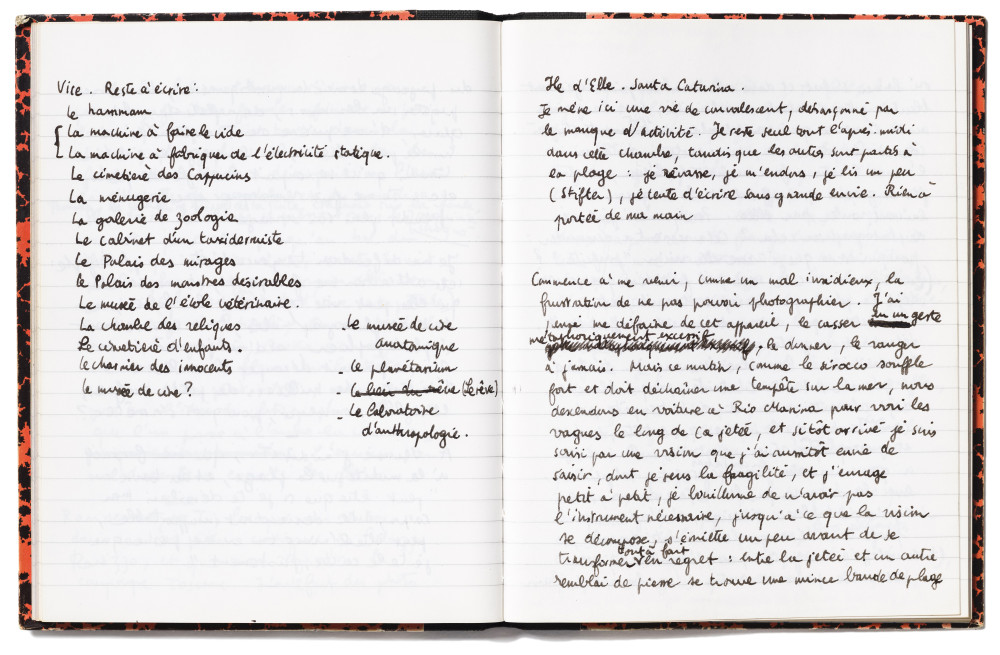 Vice. Reste à écrire :
Le hammam
La machine à faire le vide
La machine à fabriquer de l'électricité statique.
Le cimetière des Cappucins
La ménagerie
La galerie de zoologie
Le cabinet d'un taxidermiste
Le Palais des mirages
Le Palais des monstres désirables
Le musée de l'école vétérinaire.
La chambre des reliques
Le cimetière d'enfants.
Le charnier des innocents
Le musée de cire ?
- Le musée de cire
anatomique
- Le planétarium
- Le rêve (Le rêve)
- Le laboratoire
d'anthropologie.
Ile d'Elbe. Santa Caterina.
Je mène ici une vie de convalescent, désarçonné par
le manque d'activité. Je reste seul tout l'après-midi
dans cette chambre, tandis que les autres sont partis à
la plage : je rêvasse, je m'endors, je lis un peu
(Stifter), je tente d'écrire sans grande envie. Rien à
portée de ma main
Commence à me venir, comme un mal insidieux, la
frustration de ne pas pouvoir photographier. J'ai
pensé me défaire de cet appareil, le casser en un geste
métaphoriquement excessif, le donner, le ranger
à jamais. Mais ce matin, comme le sirocco souffle
fort et doit déchaîner une tempête sur la mer, nous
descendons en voiture à Rio Marina pour voir les
vagues le long de la jetée, et sitôt arrivé je suis
saisi par une vision que j'ai aussitôt envie de
saisir, dont je sens la fragilité, et j'enrage
petit à petit, je bouillonne de n'avoir pas
l'instrument nécessaire, jusqu'à ce que la vision
se décompose, s'émiette un peu avant de se
transformer tout à fait en regret : entre la jetée et un autre
remblai de pierre se trouve une mince bande de plage